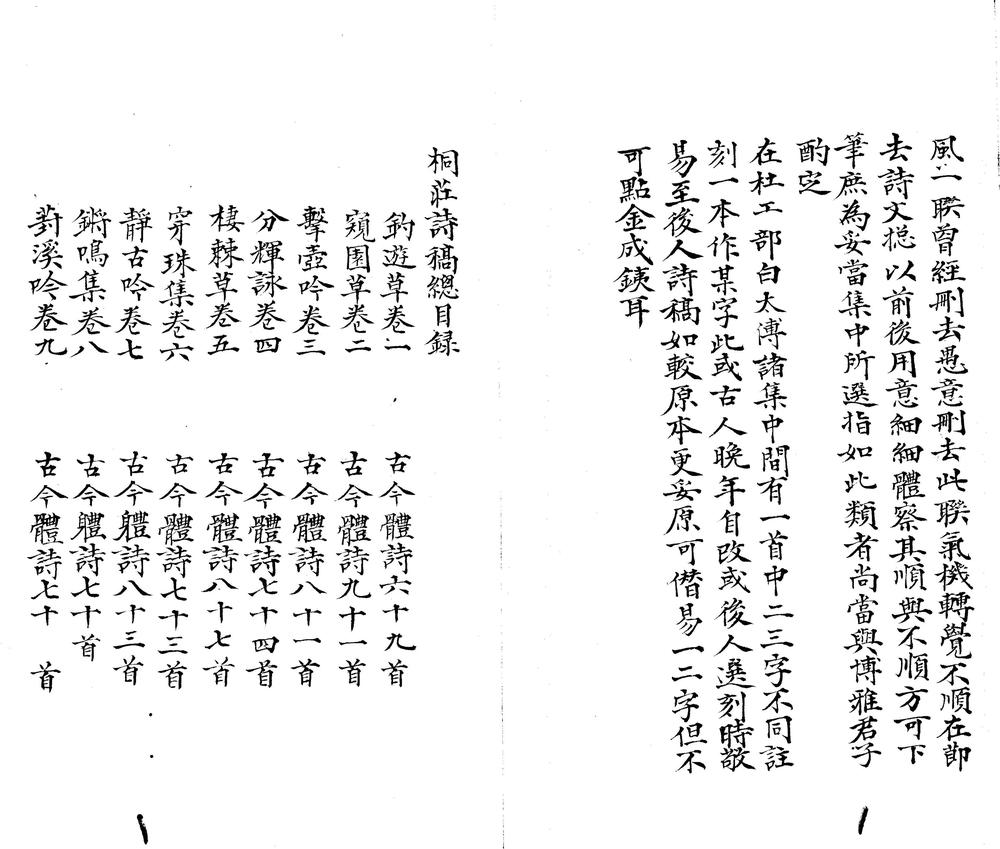 風一聯曾經刪去愚意刪去此聯氣機轉覺不順在即
去詩文揔以前後用意細細體察其順與不順方可下
筆庶為妥當集中所選指如此類者尚當與博雅君子
酌定
在杜工部白太傅諸集中間有一首中二三字不同註
刻一本作某字此或古人晚年自改或後人選刻時敬
易至後人詩稿如較原本更妥原可僭易一二字但不
可點金成銕耳
桐莊詩稿總目録
釣遊草卷一 古今體詩六十九首
窺園草卷二 古今體詩九十一首
擊壺吟卷三 古今體詩八十一首
分輝詠卷四 古今體詩七十四首
棲棘草卷五 古今體詩八十七首
穿珠集卷六 古今體詩七十三首
靜古吟卷七 古今軆詩八十三首
鏘鳴集卷八 古今軆詩七十首
葑溪吟卷九 古今體詩七十 首